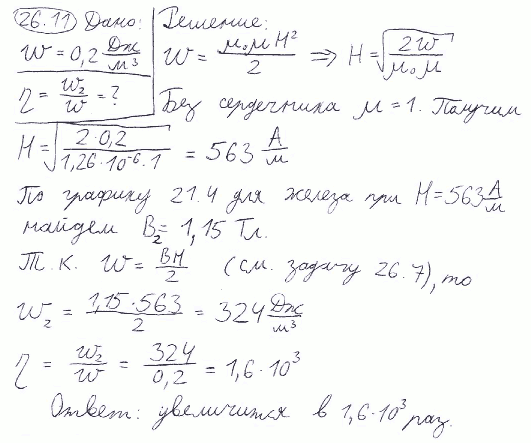 26.11 Дано: Решение:
w = 0,2 Дж/м³ w = μ₀μH²/2 ⇒ H = √(2w/μ₀μ)
η = w₂/w = ? Без сердечника μ = 1. Получим
H = √(2·0,2/1,26·10⁻⁶·1) = 563 А/м
По графику 21.4 для железа при H = 563 А/м
найдем B₂ = 1,15 Тл.
Т. к. w = BH/2 (см. задачу 26.7), то
w₂ = 1,15·563/2 = 324 Дж/м³
η = w₂/w = 324/0,2 = 1,6·10³
Ответ: увеличится в 1,6·10³ раз.